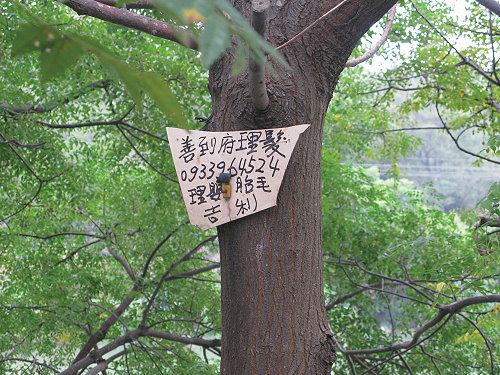 善到府理髮
0933964524
理 胎毛
吉利